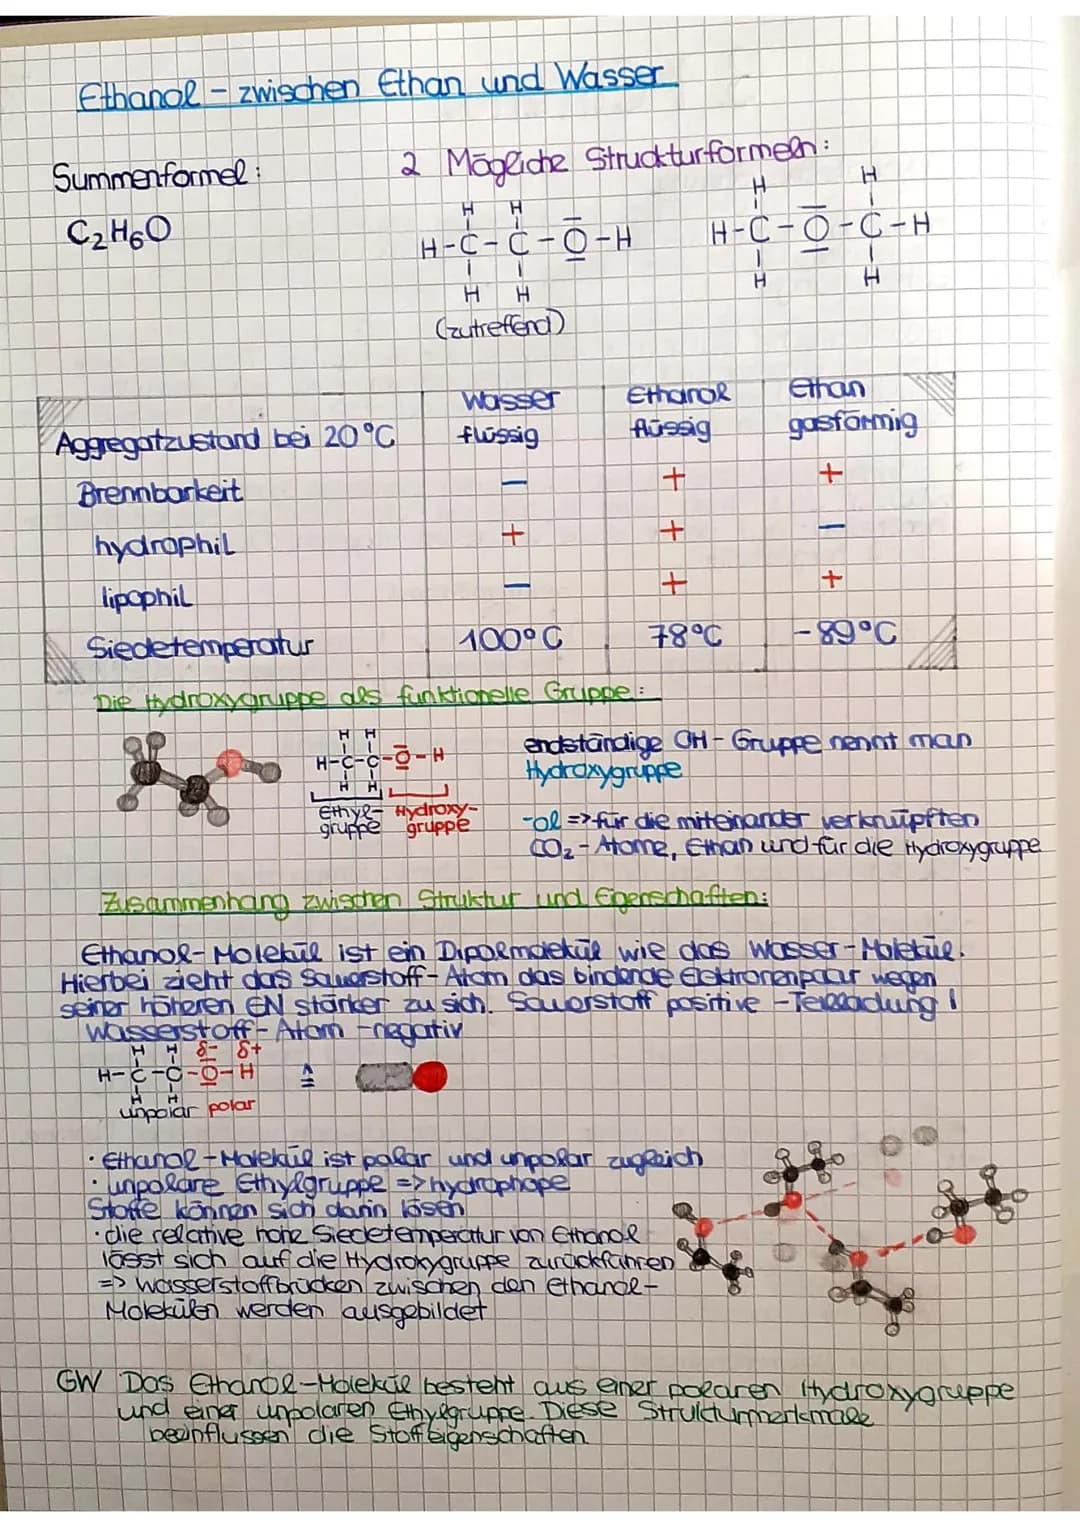 Ethanol - zwischen Ethan und Wasser
Summenformel:
C₂H₆O
2 Mögliche Struckturformeln:
H H
H-C-C-O-H
H H
(zutreffend)
H H
H-C-O-C-H
H H
Wasser Ethanol Ethan
Aggregatzustand bei 20°C flüssig flüssig gasförmig
Brennbarkeit - + +
hydrophil + + -
lipophil - + +
Siedetemperatur 100°C 78°C -89°C
Die Hydroxygruppe als funktionelle Gruppe:
H H
H-C-C-O-H
H H
Ethyl- Hydroxy-
gruppe gruppe
endständige OH-Gruppe nennt man
Hydroxygruppe
-ol => für die miteinander verknüpften
CO₂-Atome, Ethan und für die Hydroxygruppe
Zusammenhang zwischen Struktur und Eigenschaften:
Ethanol-Molekül ist ein Dipolmolekül wie das Wasser-Molekül.
Hierbei zieht das Sauerstoff-Atom das bindende Elektronenpaar wegen
seiner höheren EN stärker zu sich. Sauerstoff positive -Teilladung |
Wasserstoff-Atom -negativ
H H δ- δ+
H-C-C-O-H ≙
H H
unpolar polar
· Ethanol-Molekül ist polar und unpolar zugleich
· unpolare Ethylgruppe => hydrophope
Stoffe können sich darin lösen
· die relative hohe Siedetemperatur von Ethanol
lässt sich auf die Hydroxygruppe zurückführen
=> Wasserstoffbrücken zwischen den Ethanol-
Molekülen werden ausgebildet
GW Das Ethanol-Molekül besteht aus einer polaren Hydroxygruppe
und einer unpolaren Ethylgruppe. Diese Strukturmerkmale
beeinflussen die Stoffeigenschaften